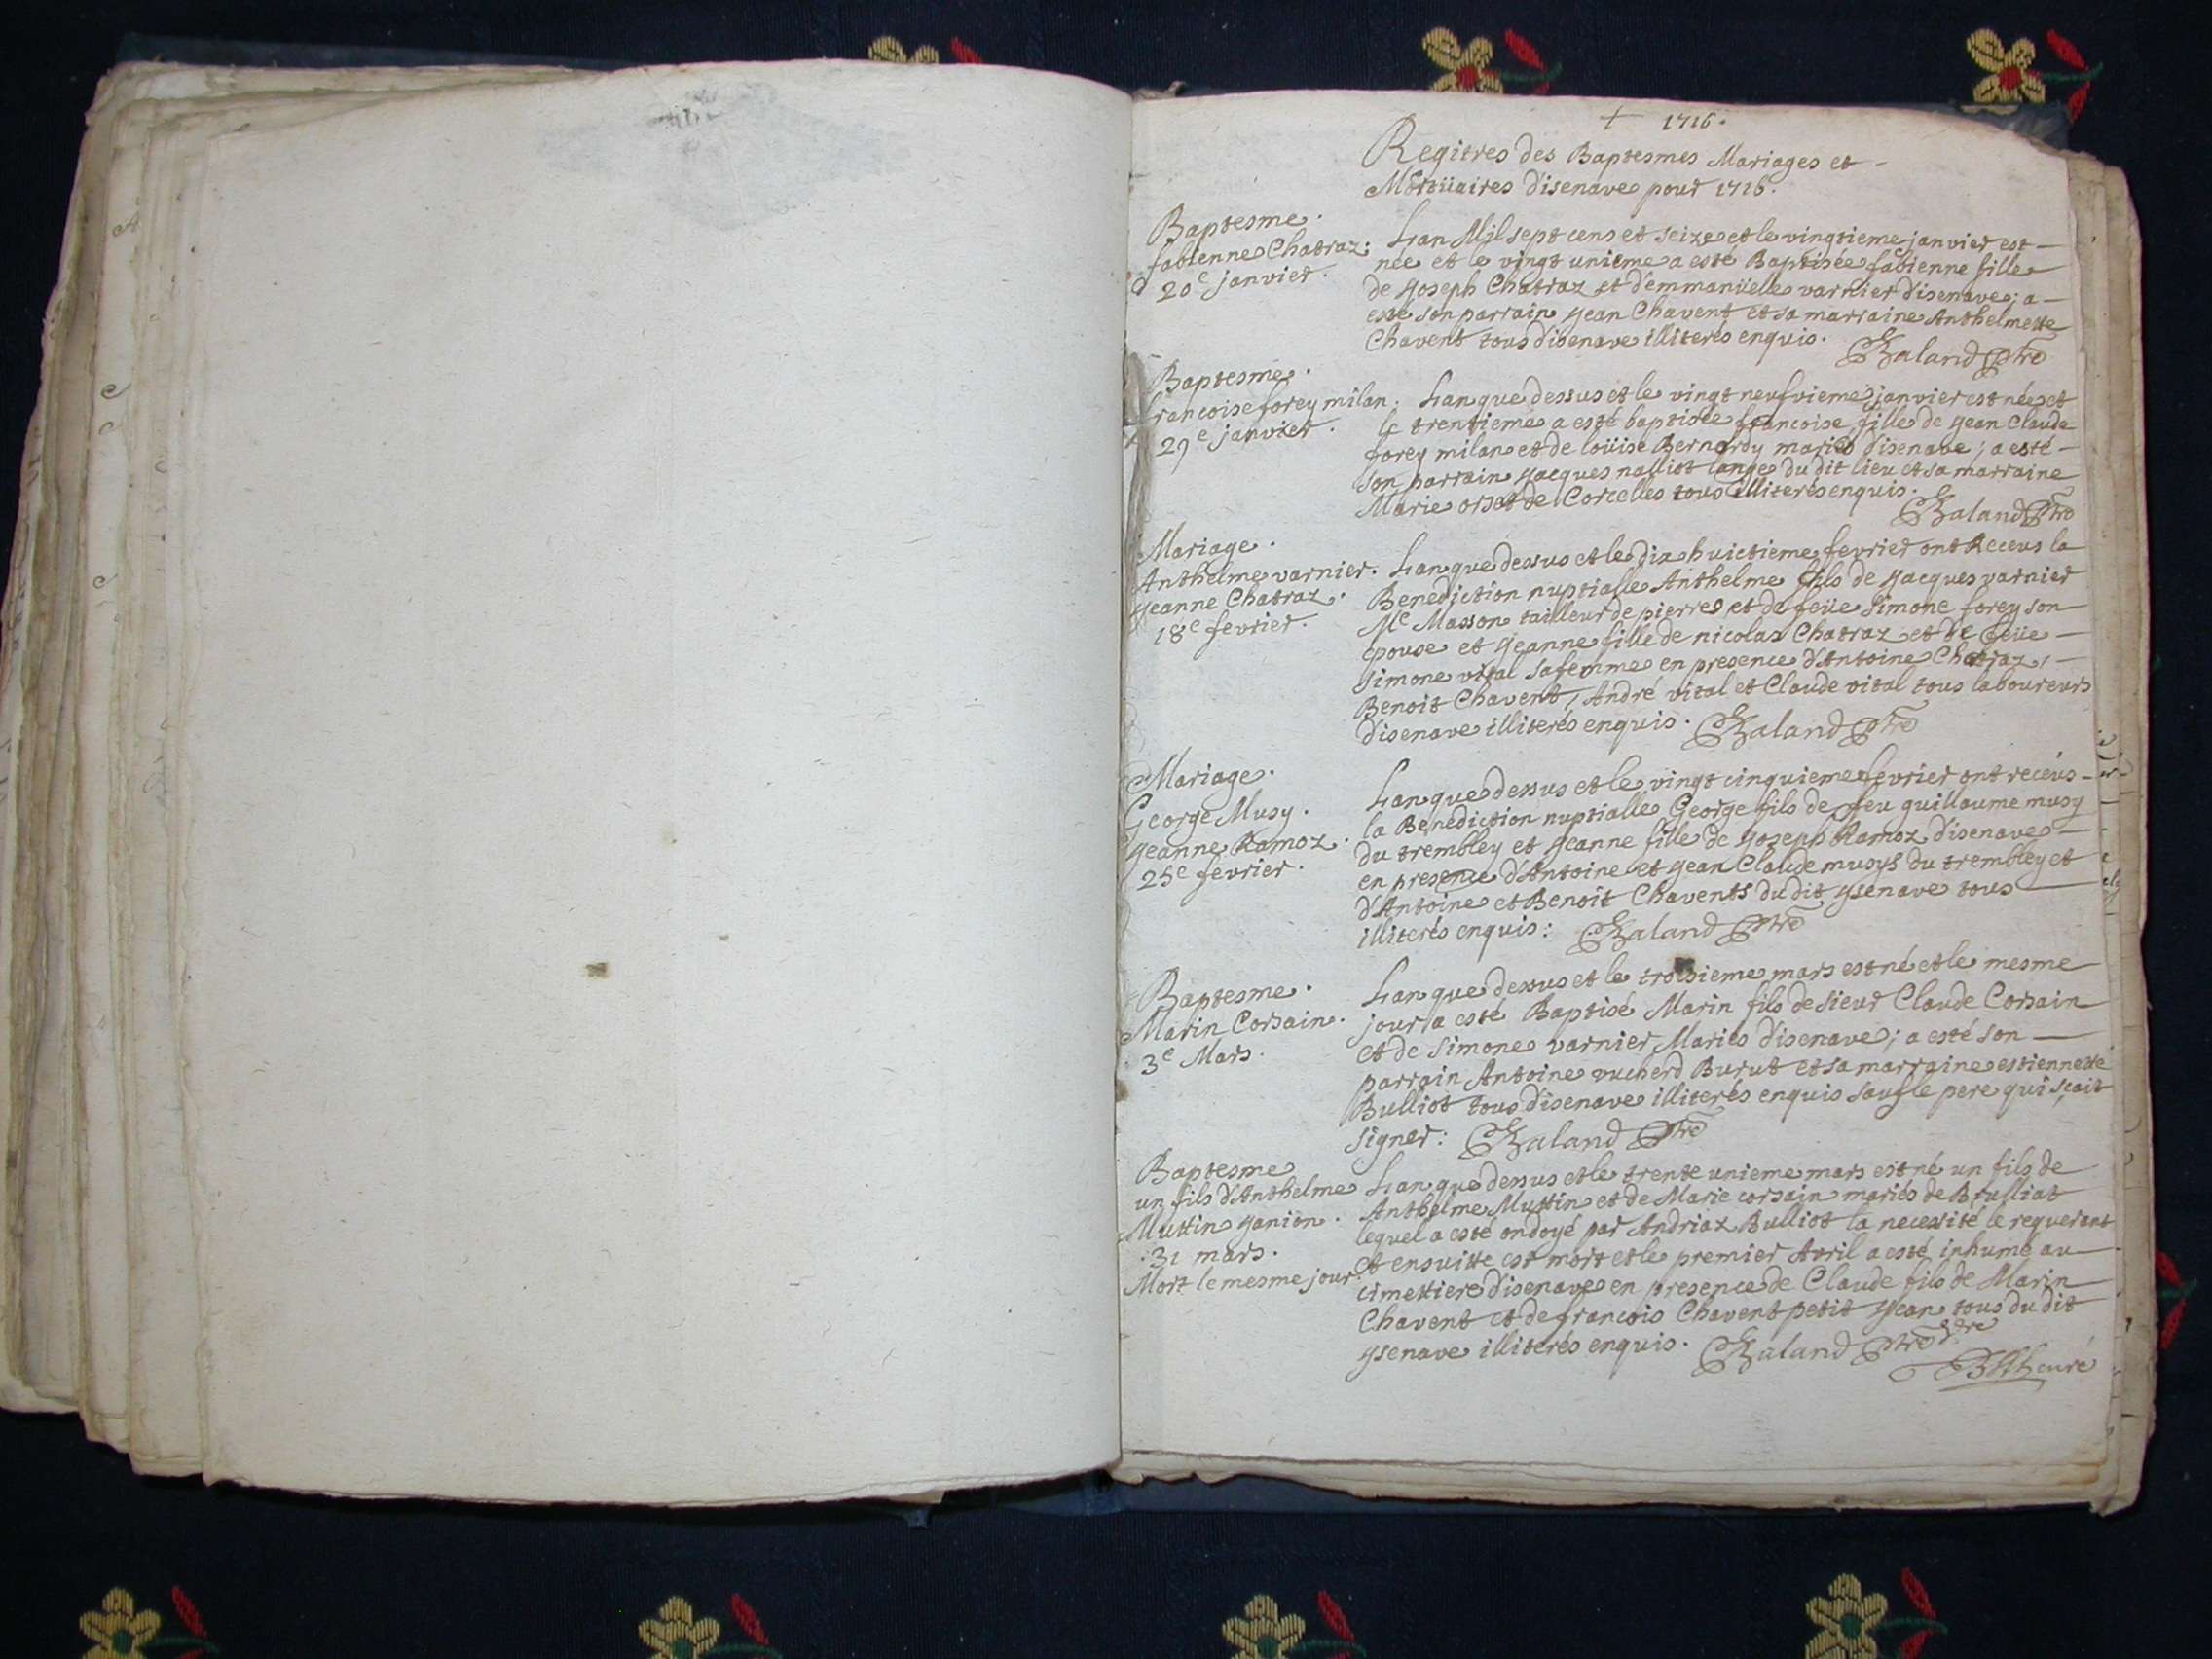 + 1716.
Regitres des Baptesmes Mariages et
Mortüaires disenave pour 1716.
Baptesme.
fabienne Chatraz.
20e janvier.
Lan Mil sept cens et seize et le vingtieme janvier est
née et le vingt unieme a esté Baptisée fabienne fille
de yoseph Chatraz et d'emmanüelle varnier disenave; a
esté son parrain yean Chavent et sa marraine Anthelmette
Chavent tous disenave illiterés enquis.
Baland Ptre
Baptesme.
francoise forey milan.
29e janvier.
Lan que dessus et le vingt neufvieme janvier est née et
le trentieme a esté baptisée francoise fille de yean Claude
forey milan et de loüise Bernardy mariés disenave; a esté
son parrain yacques nalliot lange du dit lieu et sa marraine
Marie orset de Corcelles tous illiterés enquis.
Baland Ptre
Mariage.
Anthelme varnier.
yeanne Chatraz.
18e fevrier.
Lan que dessus et le dix huictieme fevrier ont Receus la
Benediction nuptialle Anthelme fils de yacques varnier
Me Masson tailleur de pierres et de feüe simone forey son
epouse et yeanne fille de nicolas Chatraz et de feüe
simone vital sa femme en presence d'Antoine Chatraz,
Benoit Chavent, André vital et Claude vital tous laboureurs
disenave illiterés enquis. Baland Ptre
Mariage.
George Musy.
yeanne Ramoz.
25e fevrier.
Lan que dessus et le vingt cinquieme fevrier ont recéus
la Benediction nuptialle George fils de feu guillaume musy
du trembley et yeanne fille de yoseph Ramoz disenave
en presence d'Antoine et yean Claude musys du trembley et
d'Antoine et Benoit Chavents du dit ysenave tous
illiterés enquis: Baland Ptre
Baptesme.
Marin Corsain.
3e Mars.
Lan que dessus et le troisieme mars est né et le mesme
jour a esté Baptisé Marin fils de sieur Claude Corsain
et de simone varnier Mariés disenave; a esté son
parrain Antoine vucherd Burut et sa marraine estiennette
Bulliot tous disenave illiterés enquis sauf le pere qui sçait
signer: Baland Ptre
Baptesme
un fils d'Anthelme
Muttin yanion.
31 mars.
Mort le mesme jour.
Lan que dessus et le trente unieme mars est né un fils de
Anthelme Muttin et de Marie corsain mariés de Brulliat
lequel a esté ondoyé par Andriaz Bulliot la necessité le requerant
et ensuitte est mort et le premier Avril a esté inhumé au
cimettiere disenave en presence de Claude fils de Marin
Chavent et de francois Chavent petit yean tous du dit
ysenave illiterés enquis. Baland Ptre
curé